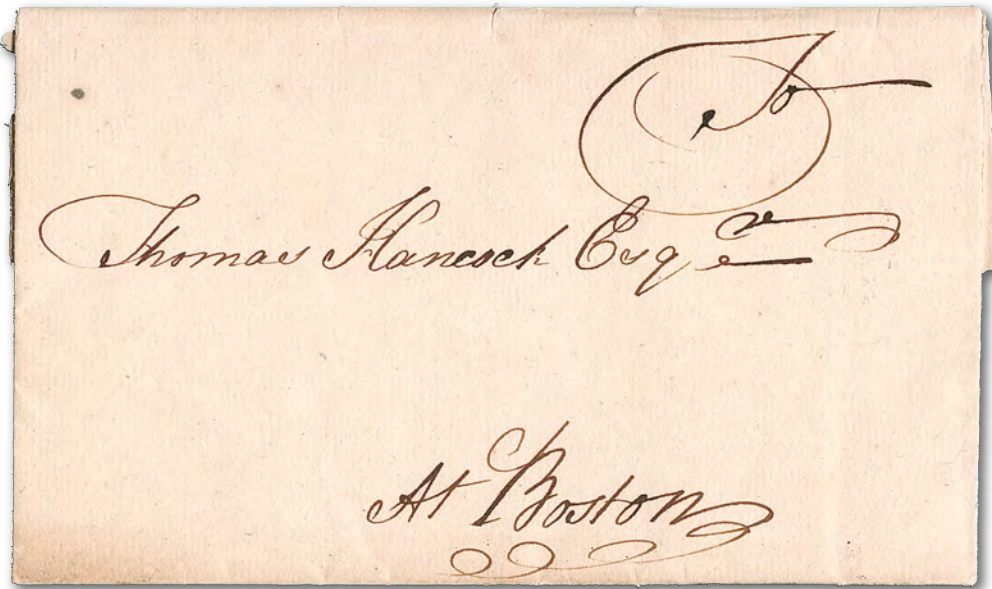 To
Thomas Hancock Esqr
At Boston